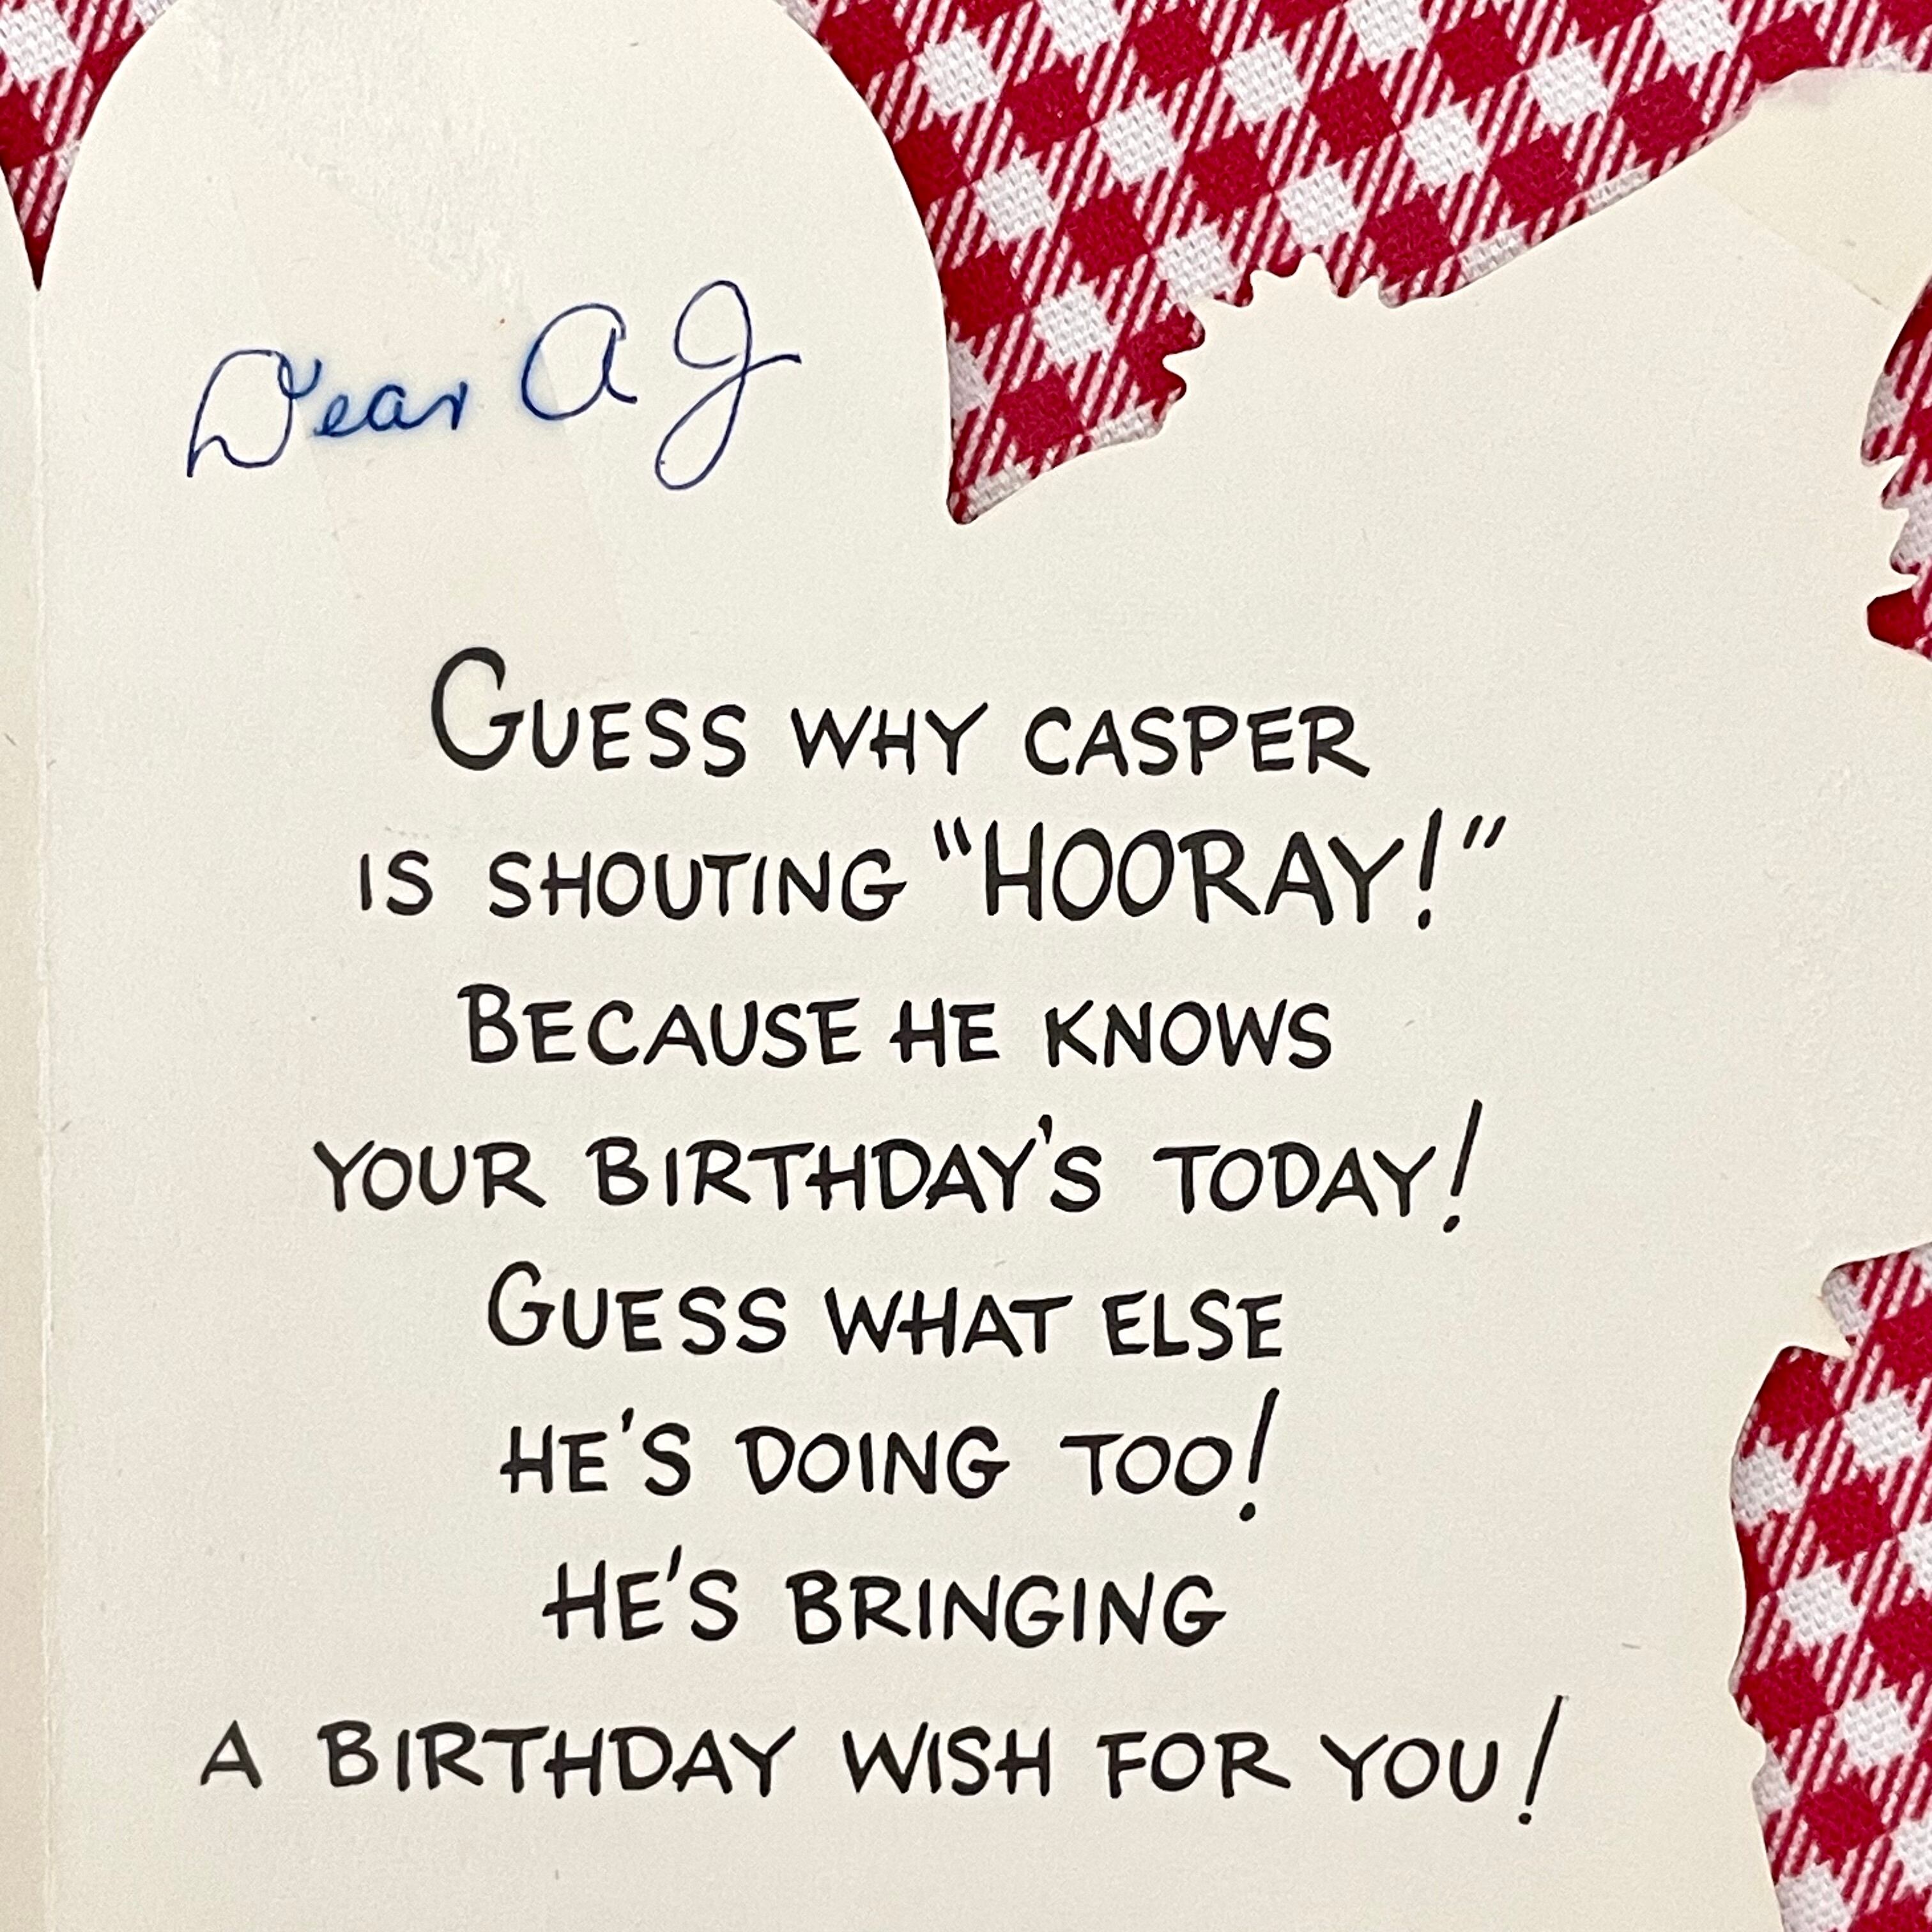 Dear A J
GUESS WHY CASPER
IS SHOUTING "HOORAY!"
BECAUSE HE KNOWS
YOUR BIRTHDAY'S TODAY!
GUESS WHAT ELSE
HE'S DOING TOO!
HE'S BRINGING
A BIRTHDAY WISH FOR YOU!